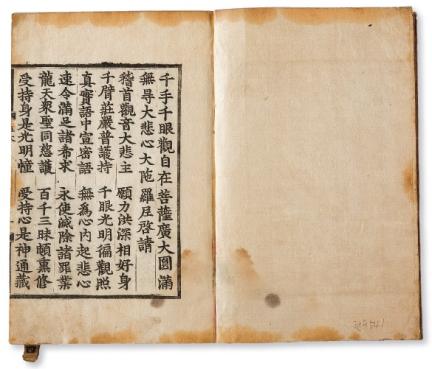 千手千眼觀自在菩薩廣大圓滿
無㝵大悲心大陁羅尼啓請
稽首觀音大悲主 願力洪深相好身
千臂莊嚴普護持 千眼光明徧觀照
真實語中宣密語 無為心内起悲心
速令滿足諸希求 永使滅除諸罪業
龍天衆聖同慈護 百千三昧頓熏修
受持身是光明幢 受持心是神通藏